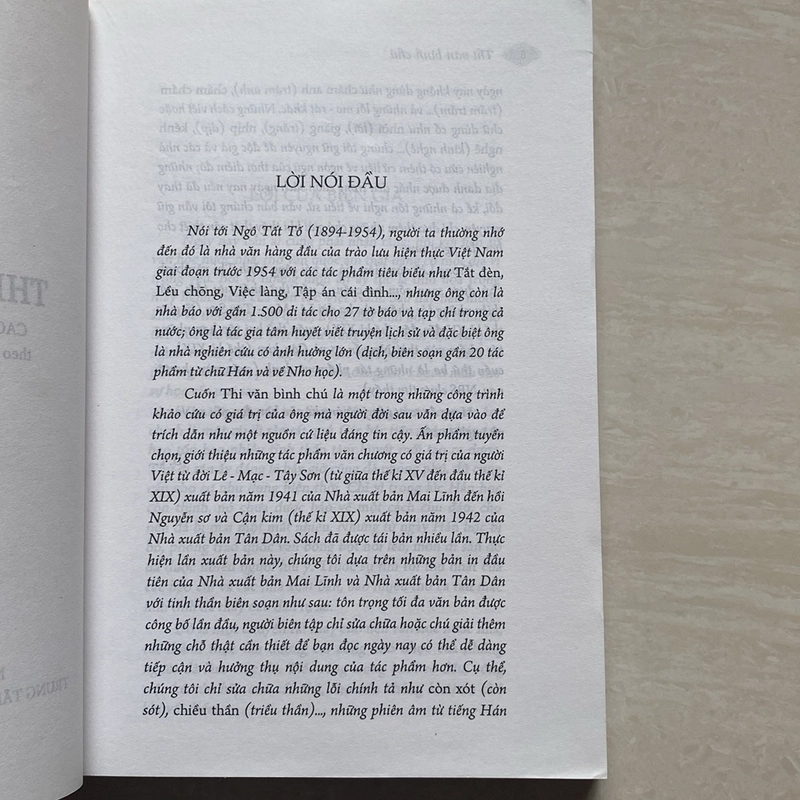 LỜI NÓI ĐẦU
Nói tới Ngô Tất Tố (1894-1954), người ta thường nhớ
đến đó là nhà văn hàng đầu của trào lưu hiện thực Việt Nam
giai đoạn trước 1954 với các tác phẩm tiêu biểu như Tắt đèn,
Lều chõng, Việc làng, Tập án cái đình..., nhưng ông còn là
nhà báo với gần 1.500 di tác cho 27 tờ báo và tạp chí trong cả
nước; ông là tác gia tâm huyết viết truyện lịch sử và đặc biệt ông
là nhà nghiên cứu có ảnh hưởng lớn (dịch, biên soạn gần 20 tác
phẩm từ chữ Hán và về Nho học).
Cuốn Thi văn bình chú là một trong những công trình
khảo cứu có giá trị của ông mà người đời sau vẫn dựa vào để
trích dẫn như một nguồn cứ liệu đáng tin cậy. Ấn phẩm tuyển
chọn, giới thiệu những tác phẩm văn chương có giá trị của người
Việt từ đời Lê - Mạc - Tây Sơn (từ giữa thế kỉ XV đến đầu thế kỉ
XIX) xuất bản năm 1941 của Nhà xuất bản Mai Lĩnh đến hồi
Nguyễn sơ và Cận kim (thế kỉ XIX) xuất bản năm 1942 của
Nhà xuất bản Tân Dân. Sách đã được tái bản nhiều lần. Thực
hiện lần xuất bản này, chúng tôi dựa trên những bản in đầu
tiên của Nhà xuất bản Mai Lĩnh và Nhà xuất bản Tân Dân
với tinh thần biên soạn như sau: tôn trọng tối đa văn bản được
công bố lần đầu, người biên tập chỉ sửa chữa hoặc chú giải thêm
những chỗ thật cần thiết để bạn đọc ngày nay có thể dễ dàng
tiếp cận và hưởng thụ nội dung của tác phẩm hơn. Cụ thể,
chúng tôi chỉ sửa chữa những lỗi chính tả như còn xót (còn
sót), chiều thần (triều thần)..., những phiên âm từ tiếng Hán